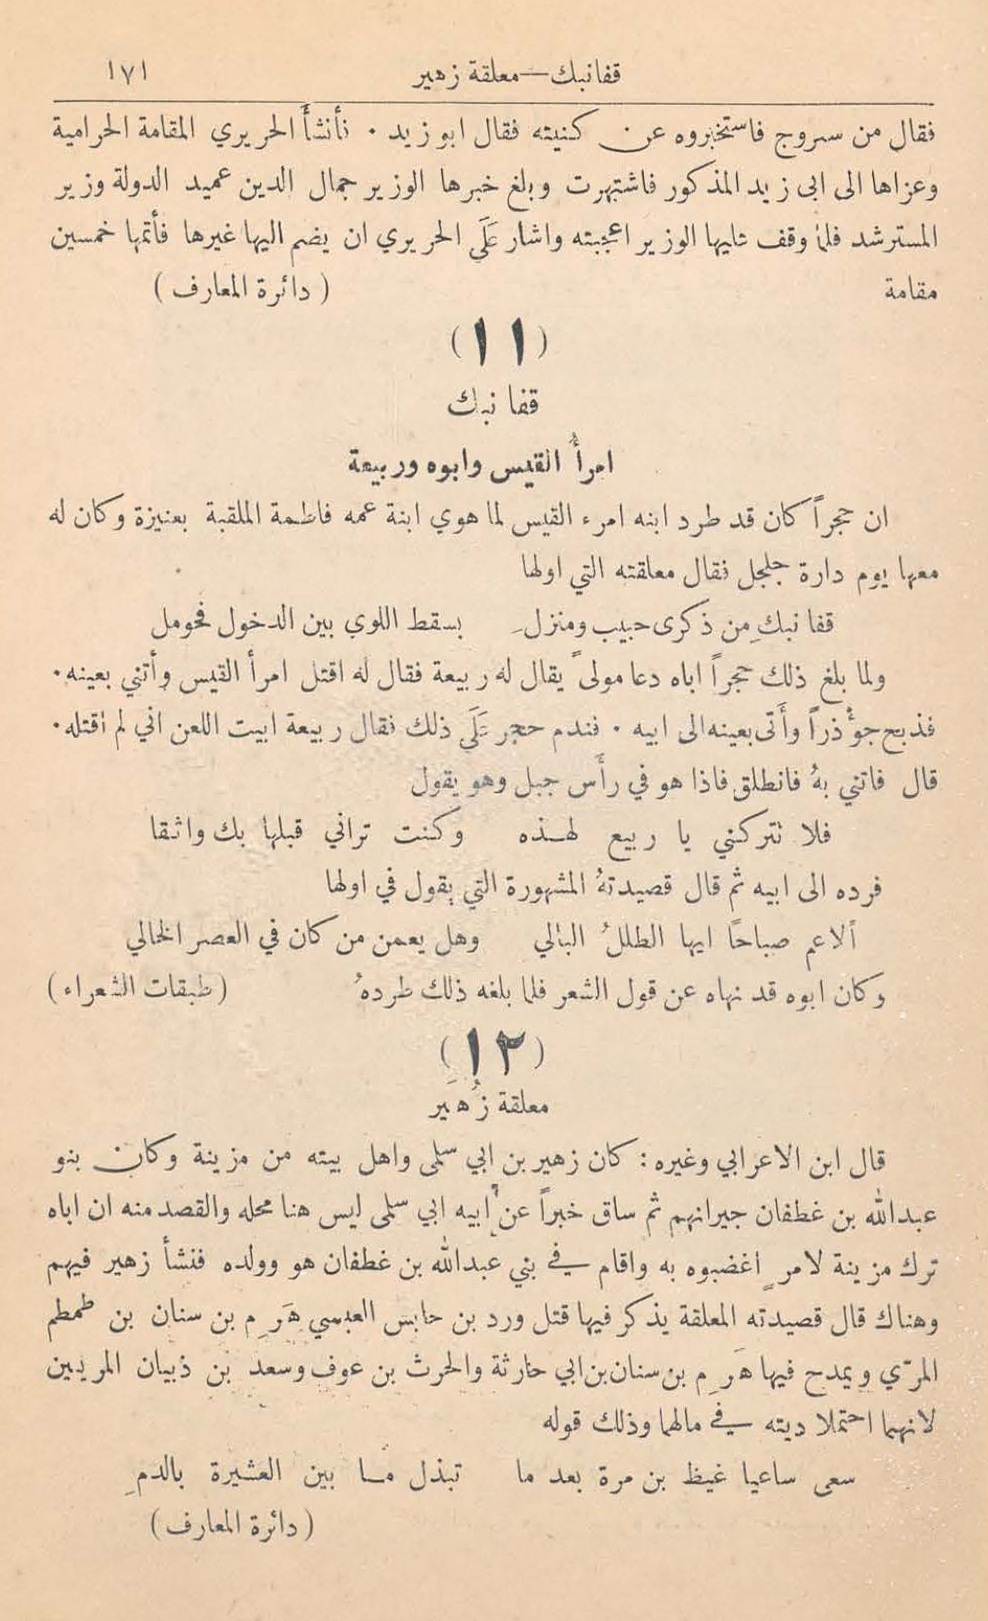 قفانبك—معلقة زهير ١٧١
فقال من سروج فاستخبروه عن كنيته فقال ابو زيد ٠ فأنشأ الحريري المقامة الحرامية
وعزاها الى ابى زيد المذكور فاشتهرت وبلغ خبرها الوزير جمال الدين عميد الدولة وزير
المسترشد فلما وقف عليها الوزير اعجبته واشار عَلَى الحريري ان يضم اليها غيرها فأتمها خمسين
مقامة (دائرة المعارف)
(١١)
قفا نبك
امرأُ القيس وابوه وربيعة
ان حجراً كان قد طرد ابنه امرء القيس لما هوي ابنة عمه فاطمة الملقبة بعنيزة وكان له
معها يوم دارة جلجل فقال معلقته التي اولها
قفا نبكِ من ذكرى حبيب ومنزلِ بسقط اللوي بين الدخول فحومل
ولما بلغ ذلك حجراً اباه دعا مولىً يقال له ربيعة فقال له اقتل امرأ القيس وأتني بعينه٠
فذبح جوُّذراً وأَتى بعينه الى ابيه ٠ فندم حجر عَلَى ذلك فقال ربيعة ابيت اللعن اني لم اقتله٠
قال فاتني بهُ فانطلق فاذا هو في رأَس جبل وهو يقول
فلا نتركني يا ربيع لهـذه وكنت تراني قبلها بك واثقا
فرده الى ابيه ثم قال قصيدتهُ المشهورة التي يقول في اولها
ألاعم صباحًا ايها الطللُ البالي وهل يعمن من كان في العصر الخالي
وكان ابوه قد نهاه عن قول الشعر فلما بلغه ذلك طردهُ (طبقات الشعراء)
(١٢)
معلقة زُهَير
قال ابن الاعرابي وغيره : كان زهير بن ابي سلمى واهل بيته من مزينة وكان بنو
عبدالله بن غطفان جيرانهم ثم ساق خبراً عن ابيه ابي سلمى ليس هنا محله والقصد منه ان اباه
ترك مزينة لامرٍ اغضبوه به واقام في بني عبدالله بن غطفان هو وولده فنشأ زهير فيهم
وهناك قال قصيدته المعلقة يذكر فيها قتل ورد بن حابس العبسي هَرِم بن سنان بن طمطم
المرّي ويمدح فيها هَرِم بن سنان بن ابي حارثة والحرث بن عوف وسعد بن ذبيان المريين
لانهما احتملا ديته في مالهما وذلك قوله
سعى ساعيا غيظ بن مرة بعد ما تبذل مـا بين العشيرة بالدمِ
(دائرة المعارف)